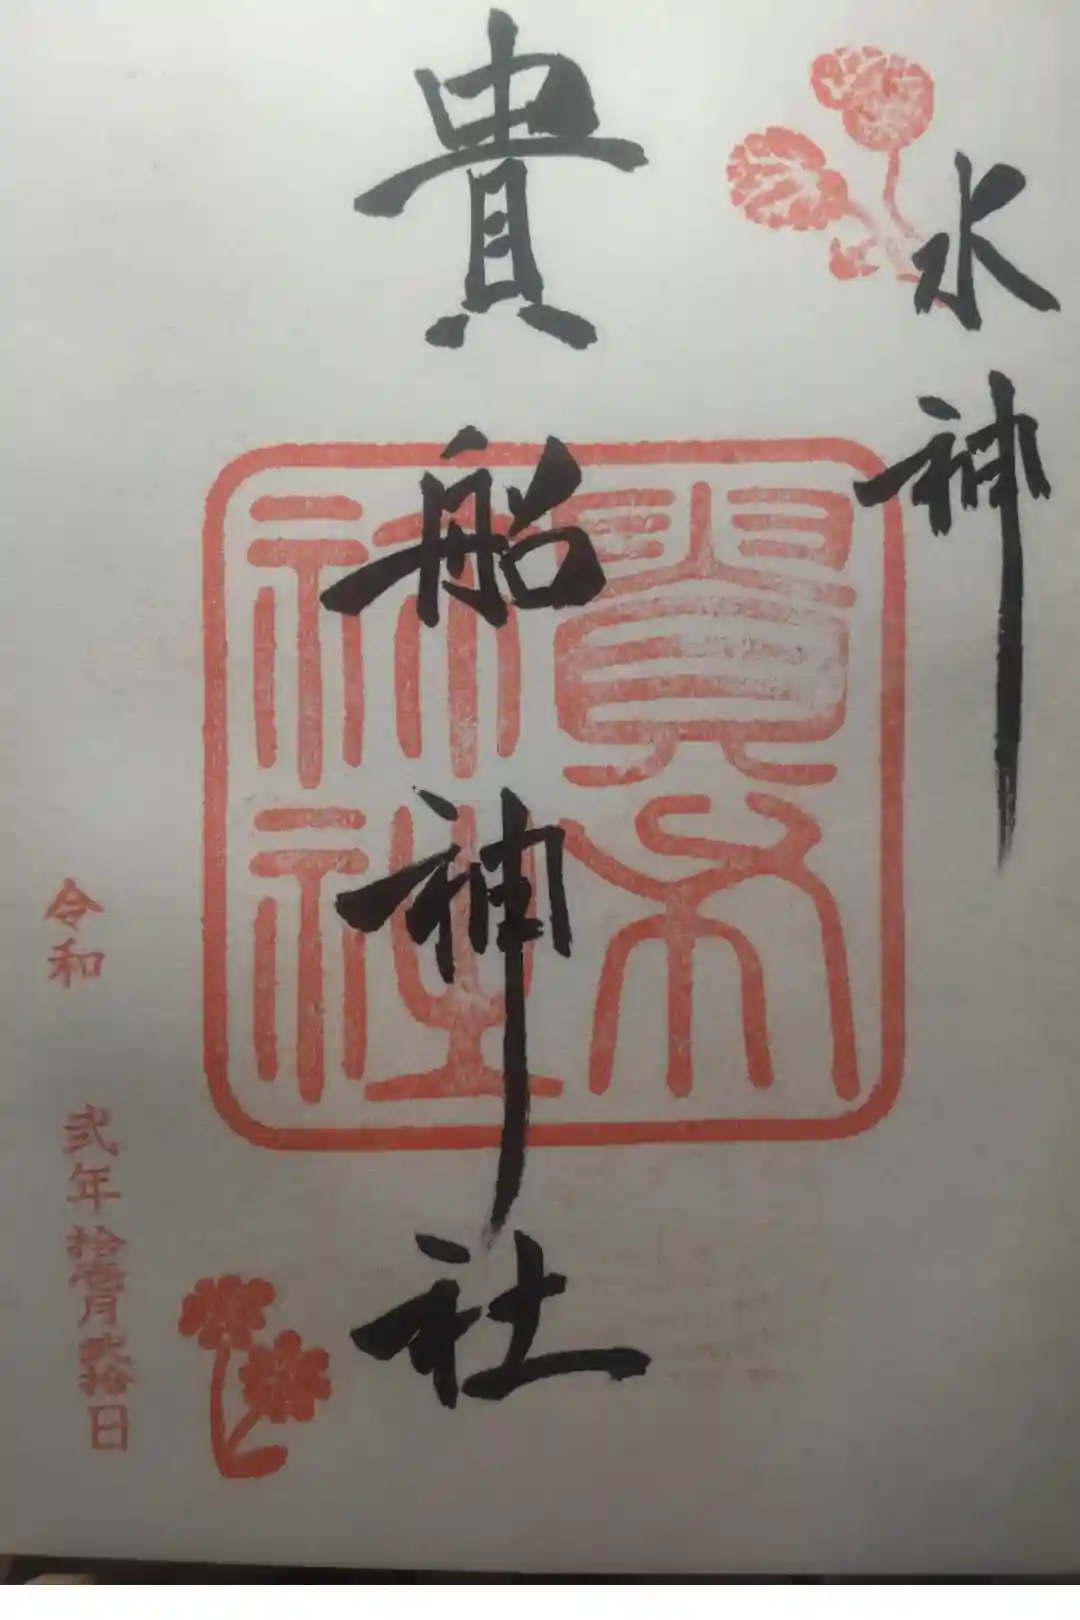 水神
貴船神社
令和 弐年拾壱月弐拾日